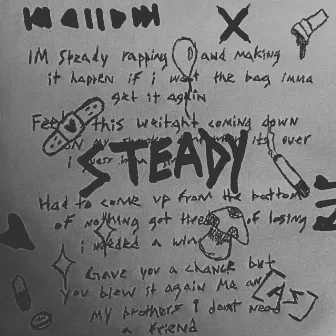 IM Steady rapping and making
it happen if i want the bag imma
get it again
Feelin this weitght coming down
ON my its over
STEADY
i
Had to come up from the bottom
of nothing got three of losing
i needed a win
Gave you a chance but
you blew it again me an
my brothers I dont need
a friend